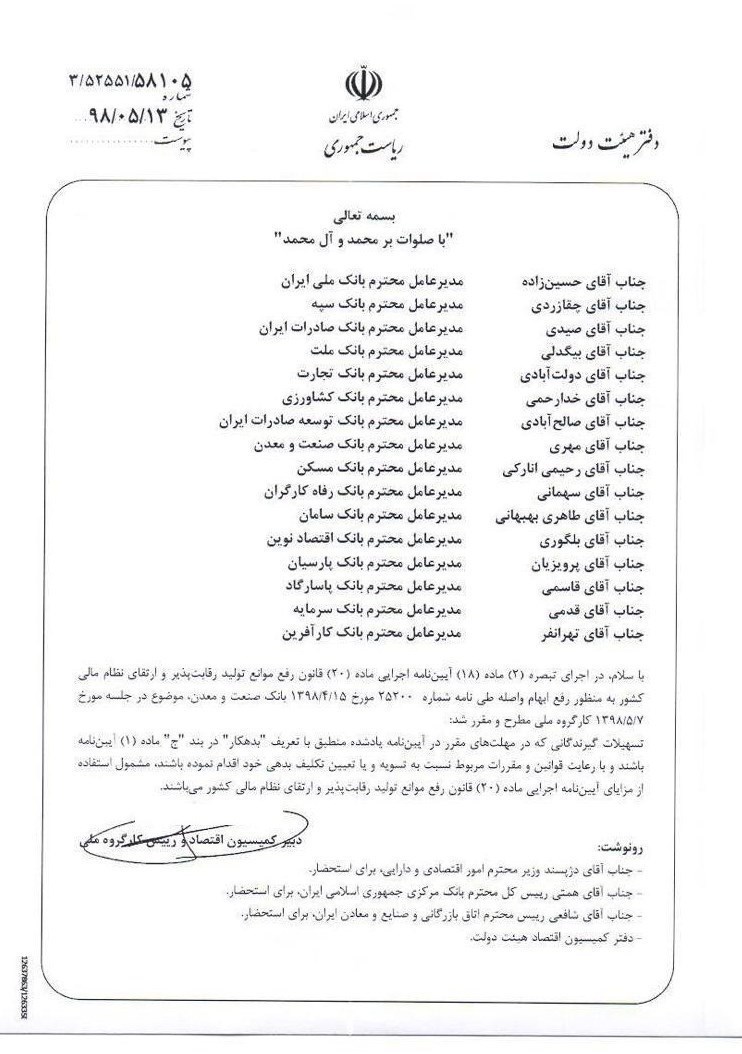 ۳/۵۲۵۵۱/۵۸۱۰۵
شماره
تاریخ ۹۸/۰۵/۱۳
پیوست
جمهوری اسلامی ایران
ریاست جمهوری
دفتر هیئت دولت
بسمه تعالی
"با صلوات بر محمد و آل محمد"
جناب آقای حسین‌زاده مدیرعامل محترم بانک ملی ایران
جناب آقای چقازردی مدیرعامل محترم بانک سپه
جناب آقای صیدی مدیرعامل محترم بانک صادرات ایران
جناب آقای بیگدلی مدیرعامل محترم بانک ملت
جناب آقای دولت‌آبادی مدیرعامل محترم بانک تجارت
جناب آقای خدارحمی مدیرعامل محترم بانک کشاورزی
جناب آقای صالح‌آبادی مدیرعامل محترم بانک توسعه صادرات ایران
جناب آقای مهری مدیرعامل محترم بانک صنعت و معدن
جناب آقای رحیمی انارکی مدیرعامل محترم بانک مسکن
جناب آقای سهمانی مدیرعامل محترم بانک رفاه کارگران
جناب آقای طاهری بهبهانی مدیرعامل محترم بانک سامان
جناب آقای بلگوری مدیرعامل محترم بانک اقتصاد نوین
جناب آقای پرویزیان مدیرعامل محترم بانک پارسیان
جناب آقای قاسمی مدیرعامل محترم بانک پاسارگاد
جناب آقای قدمی مدیرعامل محترم بانک سرمایه
جناب آقای تهرانفر مدیرعامل محترم بانک کارآفرین
با سلام، در اجرای تبصره (۲) ماده (۱۸) آیین‌نامه اجرایی ماده (۲۰) قانون رفع موانع تولید رقابت‌پذیر و ارتقای نظام مالی
کشور به منظور رفع ابهام واصله طی نامه شماره ۲۵۲۰۰ مورخ ۱۳۹۸/۴/۱۵ بانک صنعت و معدن، موضوع در جلسه مورخ
۱۳۹۸/۵/۷ کارگروه ملی مطرح و مقرر شد:
تسهیلات گیرندگانی که در مهلت‌های مقرر در آیین‌نامه یادشده منطبق با تعریف "بدهکار" در بند "ج" ماده (۱) آیین‌نامه
باشند و با رعایت قوانین و مقررات مربوط نسبت به تسویه و یا تعیین تکلیف بدهی خود اقدام نموده باشند، مشمول استفاده
از مزایای آیین‌نامه اجرایی ماده (۲۰) قانون رفع موانع تولید رقابت‌پذیر و ارتقای نظام مالی کشور می‌باشند.
دبیر کمیسیون اقتصاد و رییس کارگروه ملی
رونوشت:
- جناب آقای دژپسند وزیر محترم امور اقتصادی و دارایی، برای استحضار.
- جناب آقای همتی رییس کل محترم بانک مرکزی جمهوری اسلامی ایران، برای استحضار.
- جناب آقای شافعی رییس محترم اتاق بازرگانی و صنایع و معادن ایران، برای استحضار.
- دفتر کمیسیون اقتصاد هیئت دولت.